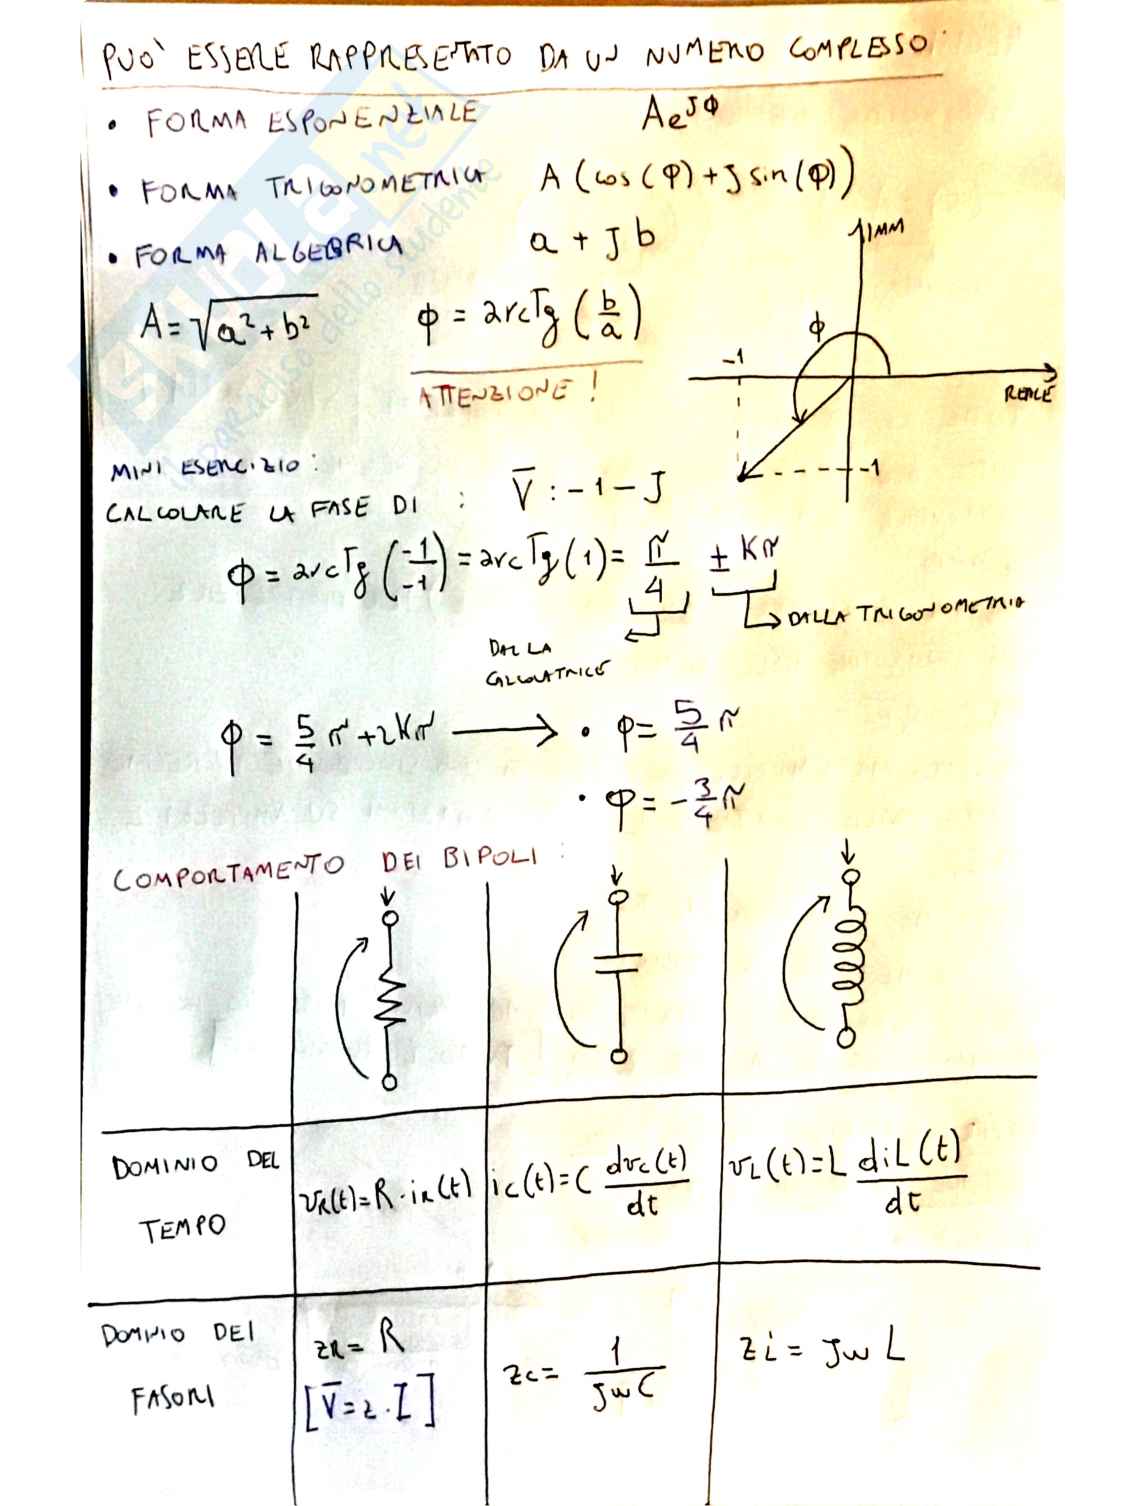 PUÒ ESSERE RAPPRESENTATO DA UN NUMERO COMPLESSO:
• FORMA ESPONENZIALE Ae^{Jφ}
• FORMA TRIGONOMETRICA A (cos(φ)+J sin(φ))
• FORMA ALGEBRICA a + J b
IMM
A = √(a²+b²) φ = arcTg (b/a)
φ
-1
ATTENZIONE !
REALE
-1
MINI ESERCIZIO:
CALCOLARE LA FASE DI : V̅ : -1 - J
φ = arcTg (-1/-1) = arcTg (1) = π/4 ± Kπ
DALLA TRIGONOMETRIA
DALLA
CALCOLATRICE
φ = 5/4 π + 2Kπ → • φ = 5/4 π
• φ = -3/4 π
COMPORTAMENTO DEI BIPOLI:
DOMINIO DEL
TEMPO
vR(t)=R·iR(t)
ic(t)=C dvc(t)/dt
vL(t)=L diL(t)/dt
DOMINIO DEI
FASORI
ZR = R
[V̅=z·I]
zc = 1/JωC
zi = Jω L
SKUOLA.net
il paradiso dello studente